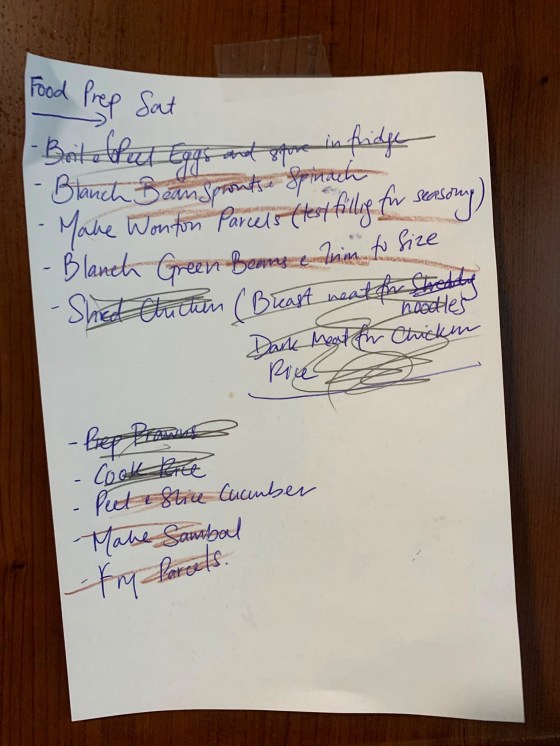 Food Prep Sat
- Boil & Peel Eggs and store in fridge
- Blanch BeanSprouts & Spinach
- Make Wonton Parcels (test fillig for seasoning)
- Blanch Green Beans & Trim to Size
- Shred Chicken (Breast meat for Shreddy
noodles
Dark Meat for Chicken
Rice
- Prep Prawns
- Cook Rice
- Peel & Slice Cucumber
- Make Sambal
- Fry Parcels.